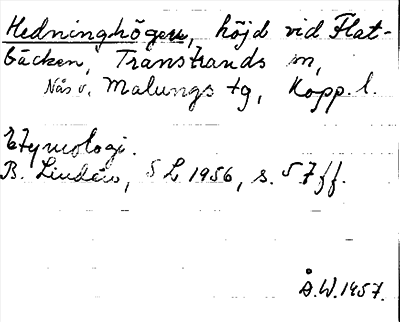 Hedninghögen, höjd vid Flat-
bäcken, Transtrands sn,
Nås o. Malungs tg, Kopp. l.
Etymologi.
B. Lindén, SL 1956, s. 57 ff.
Å.W. 1957.